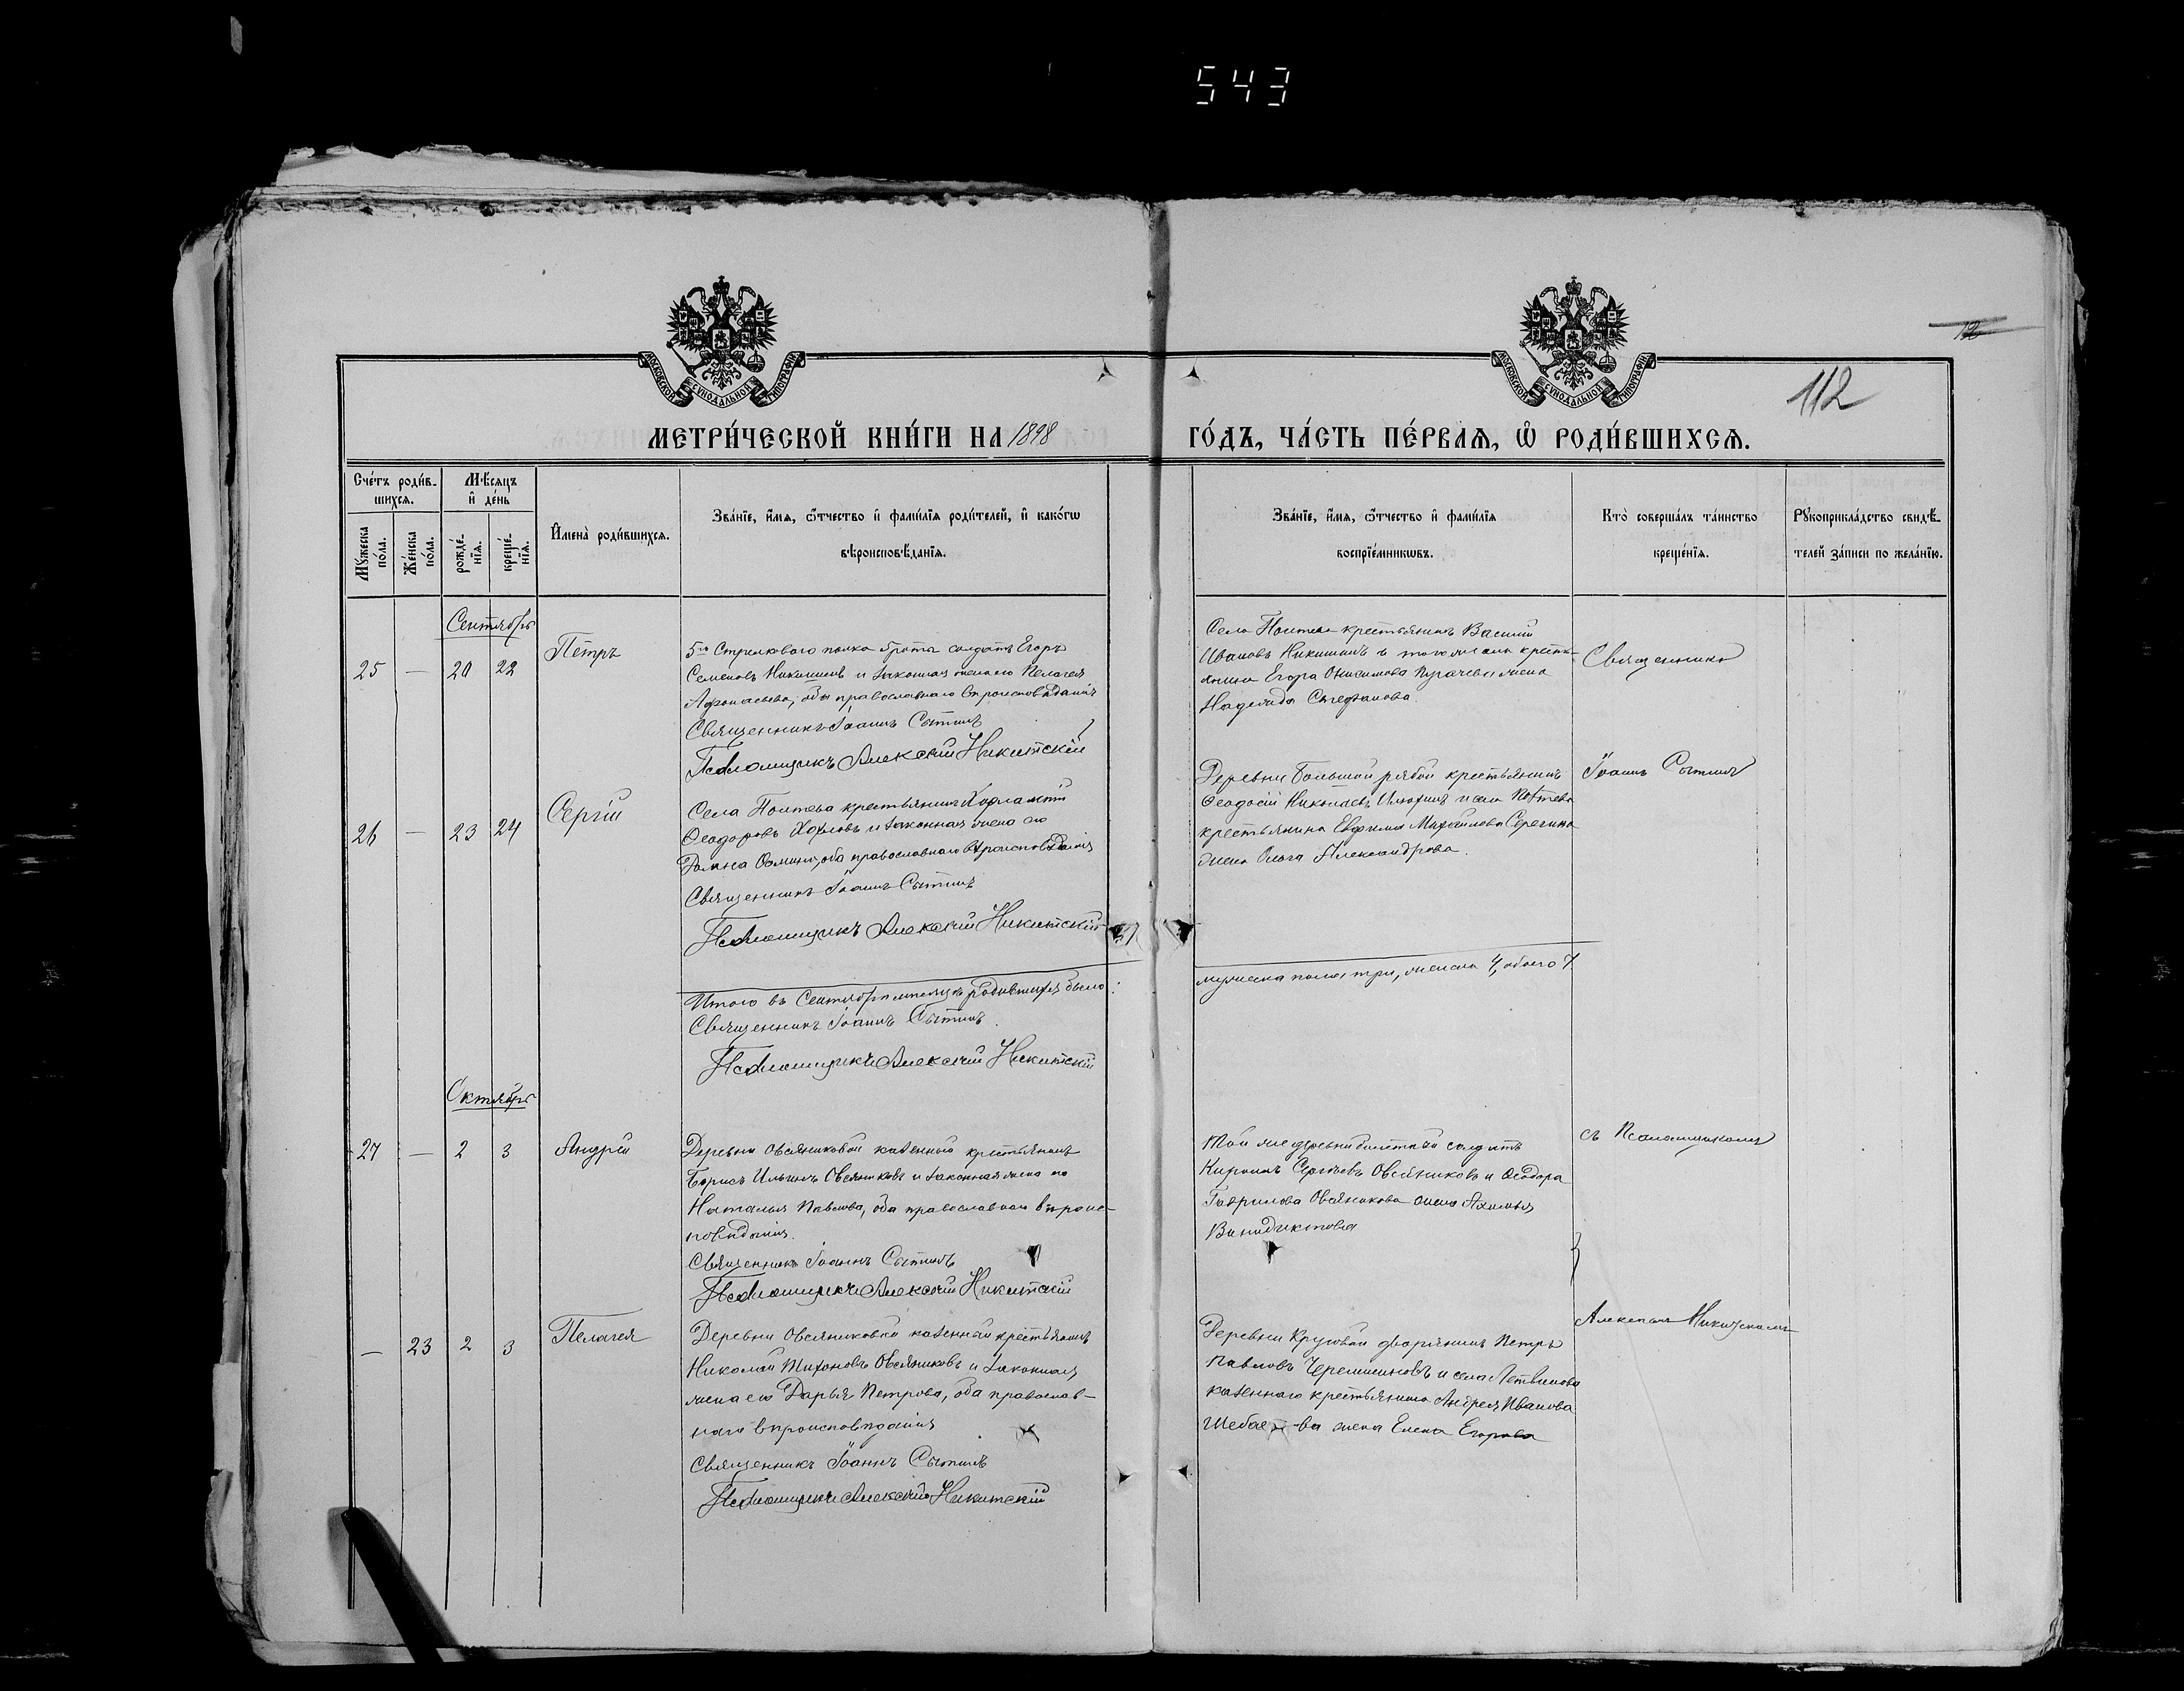 543
12
112
МОСКОВСКОЙ СѴНОДАЛЬНОЙ ТИПОГРАФІИ
МОСКОВСКОЙ СѴНОДАЛЬНОЙ ТИПОГРАФІИ
МЕТРИ́ЧЕСКОЙ КНИ́ГИ НА 1898 ГО́ДЪ, ЧА́СТЬ ПЕ́РВАѦ, Ѡ҆ РОДИ́ВШИХСѦ.
Сче́тъ роди́в-
шихсѧ.
Мꙋжеска
по́ла.
Же́нска
по́ла.
Мѣ́сѧцъ
и҆ де́нь
рожде́-
нїѧ.
креще́-
нїѧ.
И҆мена̀ роди́вшихсѧ.
Зва́нїе, и҆́мѧ, ѻ҆́тчество и҆ фами́лїѧ роди́телей, и҆ како́гѡ
вѣроисповѣ́данїѧ.
Зва́нїе, и҆́мѧ, ѻ҆́тчество и҆ фами́лїѧ
воспрїе́мникѡвъ.
Кто̀ соверша́лъ та́инство
креще́нїѧ.
Рꙋкоприкла́дство свидѣ́-
телей за́писи по жела́нїю.
Сентябрь
25 — 20 22
Петръ
5го Стрелковаго полка рота солдатъ Егоръ
Семеновъ Никишинъ и законная жена его Пелагея
Афонасьева, оба православнаго вѣроисповѣданія
Священникъ Іоаннъ Сытинъ
Псаломщикъ Алексій Никитскій
Села крестьянинъ Василій
Ивановъ Никишинъ и того же села кресть-
янина Егора Онисимова Пугачева жена
Надежда Стефанова.
Священникъ
26 — 23 24
Сергій
Села крестьянинъ
Ѳеодоровъ Хохловъ и законная жена его
Домна Фомина, оба православнаго вѣроисповѣданія
Священникъ Іоаннъ Сытинъ
Псаломщикъ Алексій Никитскій
Деревни Большой рябой крестьянинъ
Ѳеодосій Николаевъ Илюхинъ и села
крестьянина Евфима Михайлова Серегина
жена Ольга Александрова.
Іоаннъ Сытинъ
Итого въ Сентябрѣ мѣсяцѣ родившихся было:
мужеска пола три, женска 4, обоего 7.
Священникъ Іоаннъ Сытинъ.
Псаломщикъ Алексій Никитскій
Октябрь
27 — 2 3
Андрей
Деревни Овсяниковой казенный крестьянинъ
Борисъ Ильинъ Овсяниковъ и законная жена его
Наталья Павлова, оба православнаго вѣроис-
повѣданія.
Священникъ Іоаннъ Сытинъ
Псаломщикъ Алексій Никитскій
Той же деревни билетный солдатъ
Сергѣевъ Овсяниковъ и Ѳеодора
Гаврилова Овсяникова жена
Винидиктова
съ Псаломщикомъ
— 23 2 3
Пелагея
Деревни Овсяниковой казенный крестьянинъ
Николай Тихоновъ Овсяниковъ и законная
жена его Дарья Петрова, оба православ-
наго вѣроисповѣданія
Священникъ Іоаннъ Сытинъ
Псаломщикъ Алексій Никитскій
Деревни Крутой дворянинъ Петръ
Павловъ Черемисиновъ и села Летвинова
казеннаго крестьянина Андрея Иванова
Шебае-ва жена Елена Егорова
Алексѣемъ Никитскимъ